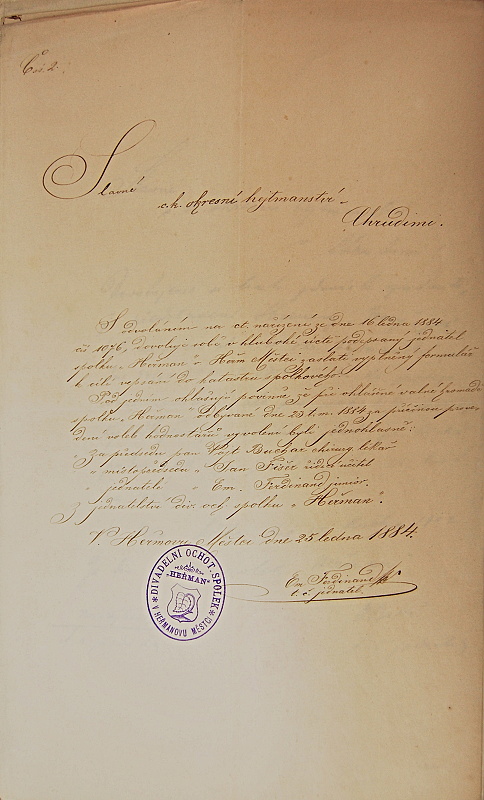 Čís. 2.
Slavné
c.k. okresní hejtmanství
Chrudimi.
S odvoláním na ct. nařízení ze dne 16 ledna 1884
čís 1076, dovoluje sobě v hluboké úctě podepsaný jednatel
spolku „Heřman" v Heřm. Městci zaslati vyplněný formulář
k cíli vepsání do katastru spolkového.
Pod jedním ohlašuji povinně, že při ohlášené valné hromadě
spolku „Heřman" odbývané dne 23 t.m. 1884 za příčinou prove-
dení voleb hodnostářů vyvoleni byli jednohlasně:
Za předsedu pan Vojt. Buchar chirurg. lékař
„ místopředsedu „ Jan Fišer řídící učitel
„ jednatele „ Em. Ferdinand junior.
Z jednatelství div. och. spolku „Heřman".
V Heřmanu Městci dne 25 ledna 1884.
Em. Ferdinand
t. č. jednatel.
DIVADELNÍ OCHOT. SPOLEK
„HEŘMAN"
V HEŘMANOVU MĚSTCI